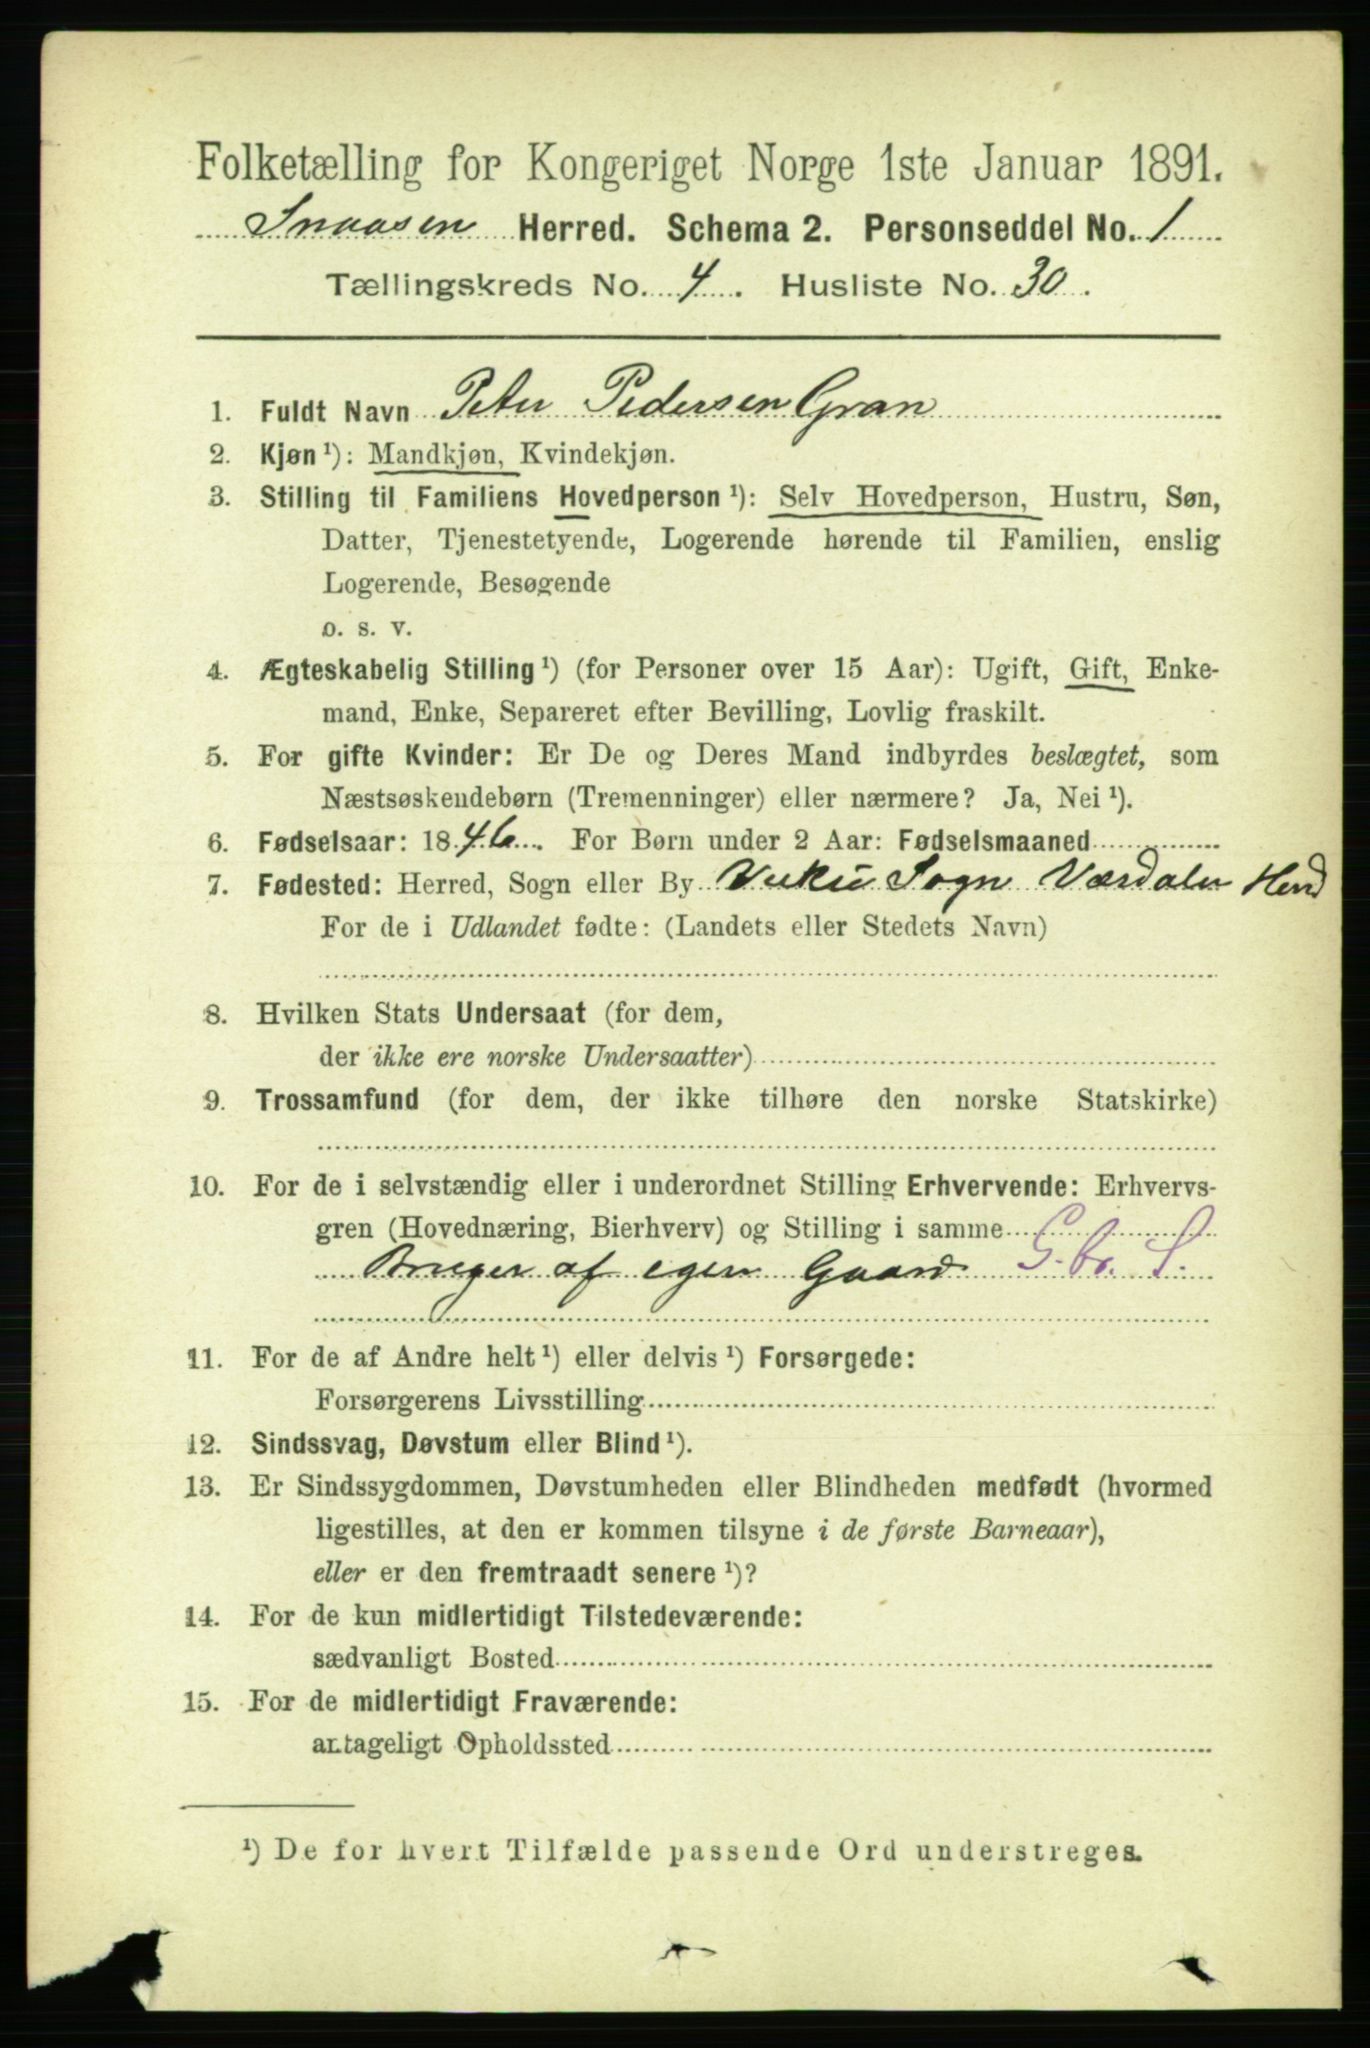 Folketælling for Kongeriget Norge 1ste Januar 1891.
Snaasen Herred. Schema 2. Personseddel No. 1
Tællingskreds No. 4. Husliste No. 30.
1. Fuldt Navn Peter Pedersen Gran
2. Kjøn¹): Mandkjøn, Kvindekjøn.
3. Stilling til Familiens Hovedperson¹): Selv Hovedperson, Hustru, Søn,
Datter, Tjenestetyende, Logerende hørende til Familien, enslig
Logerende, Besøgende
o. s. v.
4. Ægteskabelig Stilling¹) (for Personer over 15 Aar): Ugift, Gift, Enke-
mand, Enke, Separeret efter Bevilling, Lovlig fraskilt.
5. For gifte Kvinder: Er De og Deres Mand indbyrdes beslægtet, som
Næstsøskendebørn (Tremenninger) eller nærmere? Ja, Nei¹).
6. Fødselsaar: 1846. For Børn under 2 Aar: Fødselsmaaned
7. Fødested: Herred, Sogn eller By Sogn Værdalen
For de i Udlandet fødte: (Landets eller Stedets Navn)
8. Hvilken Stats Undersaat (for dem,
der ikke ere norske Undersaatter)
9. Trossamfund (for dem, der ikke tilhøre den norske Statskirke)
10. For de i selvstændig eller i underordnet Stilling Erhvervende: Erhvervs-
gren (Hovednæring, Bierhverv) og Stilling i samme
Bruger af egen Gaard G. br. S.
11. For de af Andre helt¹) eller delvis¹) Forsørgede:
Forsørgerens Livsstilling
12. Sindssvag, Døvstum eller Blind¹).
13. Er Sindssygdommen, Døvstumheden eller Blindheden medfødt (hvormed
ligestilles, at den er kommen tilsyne i de første Barneaar),
eller er den fremtraadt senere¹)?
14. For de kun midlertidigt Tilstedeværende:
sædvanligt Bosted
15. For de midlertidigt Fraværende:
antageligt Opholdssted
¹) De for hvert Tilfælde passende Ord understreges.